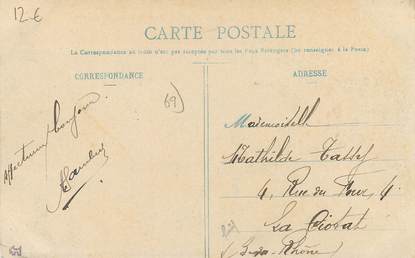 12 €
CARTE POSTALE
La Correspondance au recto n'est pas acceptée par tous les Pays Étrangers (Se renseigner à la Poste)
CORRESPONDANCE
ADRESSE
69)
Affectueux bonjour
Mademoiselle
Mathilde Tassy
4, Rue du Four, 4
La Ciotat
B-du-Rhône